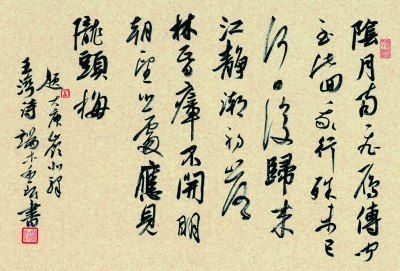 陰月南飛雁傳聞
至此回我行殊未已
何日復歸來
江静潮初落
林昏瘴不開明
朝望鄉處應見
隴頭梅
題大庾嶺北驛
王灣詩 端木 書